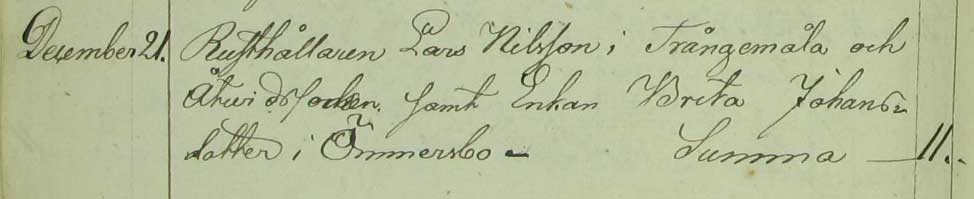 December 21. Rusthållaren Lars Nilsson i Trångemåla och
Åtvids socken, samt Enkan Brita Johans-
dotter i Ömmersbo - Summa — 11.